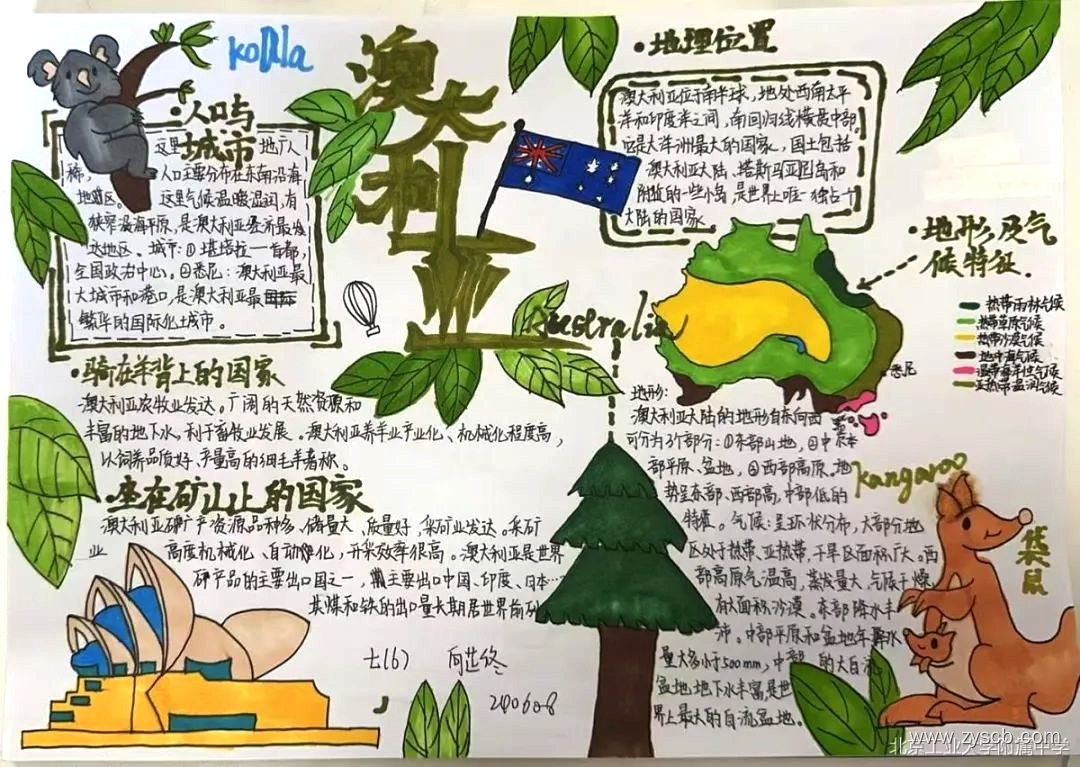 koala
澳大利亚
Australia
·人口与
城市
这里 地广人
稀, 人口主要分布在东南沿海
地区。 这里气候温暖湿润,有
狭窄沿海平原,是澳大利亚经济最发
达地区。城市:①堪培拉一首都,
全国政治中心。②悉尼:澳大利亚最
大城市和港口,是澳大利亚最
繁华的国际化大城市。
·骑在羊背上的国家
澳大利亚农牧业发达。广阔的天然资源和
丰富的地下水,利于畜牧业发展。澳大利亚养羊业产业化、机械化程度高,
以饲养品质好、产量高的细毛羊著称。
·坐在矿山上的国家
澳大利亚矿产资源品种多、储量大、质量好,采矿业发达。采矿
业 高度机械化、自动化,开采效率很高。澳大利亚是世界
矿产品的主要出口国之一,主要出口中国、印度、日本…
其煤和铁的出口量长期居世界前列
七(6)
·地理位置
澳大利亚位于南半球,地处西南太平
洋和印度洋之间,南回归线横贯中部
它是大洋洲最大的国家。国土包括
澳大利亚大陆、塔斯马尼亚岛和
附近的一些小岛,是世界上唯一独占一个
大陆的国家
·地形及气
候特征.
热带雨林气候
热带草原气候
热带沙漠气候
地中海气候
温带海洋性气候
亚热带温润气候
悉尼
地形:
澳大利亚大陆的地形自东向西
可分为3个部分:①东部山地,②中
部平原、盆地,③西部高原。地
势呈东部、西部高,中部低的
特征。气候:呈环状分布,大部分地
区处于热带、亚热带,干旱区面积广大。西
部高原气温高,蒸发量大,气候干燥
有大面积沙漠。东部降水丰
沛。中部平原和盆地年降水
量大多小于500mm,中部 的大自流
盆地地下水丰富是世
界上最大的自流盆地。
kangaroo
袋鼠
www.zyscb.com
北京工业大学附属中学